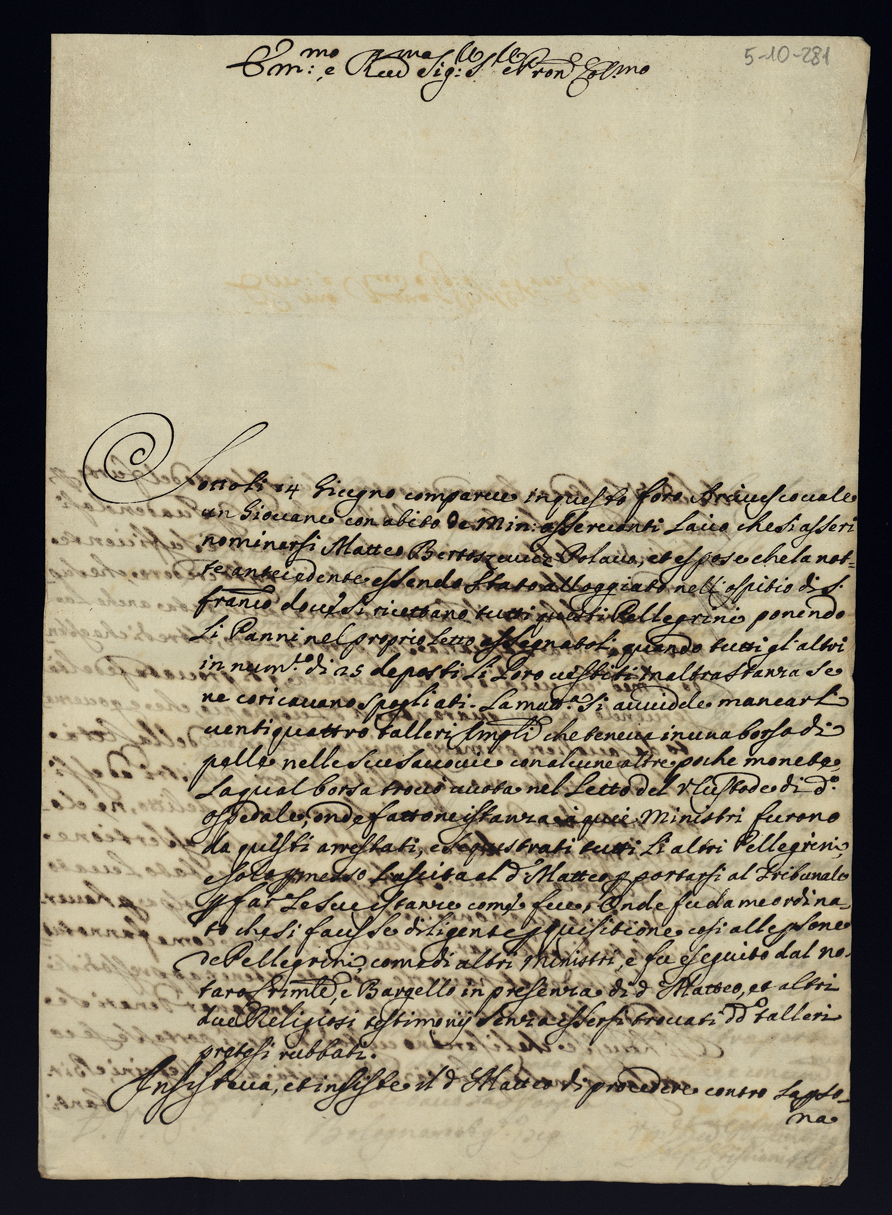 5-10-281
Em:mo e Reu.mo Sig:r Pron Col.mo
Sotto li 14 Giugno comparue in questo foro Arciuescouale
un Giouane con abito de Min: osseruanti Laico che si asserì
nominarsi Matteo Polaco, et espose che la not-
te antecedente essendo stato alloggiato nell'ospitio di S.
franco doue si ricettano tutti questi Pellegrini ponendo
Li Panni nel proprio Letto assegnatoli, quando tutti gl'altri
in num.o di 25 deposti li loro uestiti in altra stanza se
ne coricauano spogliati. La matt.a si auuidde mancarli
uentiquattro Talleri Impli che teneua in una borsa di
pelle nelle sue saccocie con alcune altre poche monete
La qual borsa trouò uuota nel Letto del Custode di d.o
ospedale, onde fattone istanza à quei Ministri furono
da questi arrestati, e sequestrati tutti Li altri Pellegrini,
e solo permesso l'uscita al d.o Matteo p portarsi al Tribunale
p far Le sue istanze come fece, Onde fu da me ordina-
to che si facesse diligente pquisitione così alle psone
de Pellegrini, come di altri Ministri, e fu eseguito dal no-
taro Crimle, e Bargello in presenza di d.o Matteo, et altri
due Religiosi testimonij senza essersi trouati dd.i talleri
pretesi rubbati.
Insisteua, et insiste il d.o Matteo di procedere contro la pso-
na